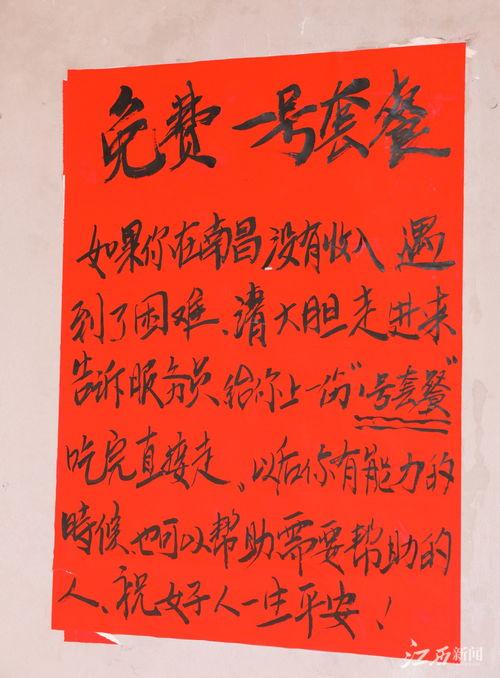 免费一号套餐
如果你在南昌没有收入遇
到了困难、请大胆走进来
告诉服务员给你上一份“1号套餐”
吃完直接走、以后你有能力的
時候、也可以帮助需要帮助的
人、祝好人一生平安！
江西新闻